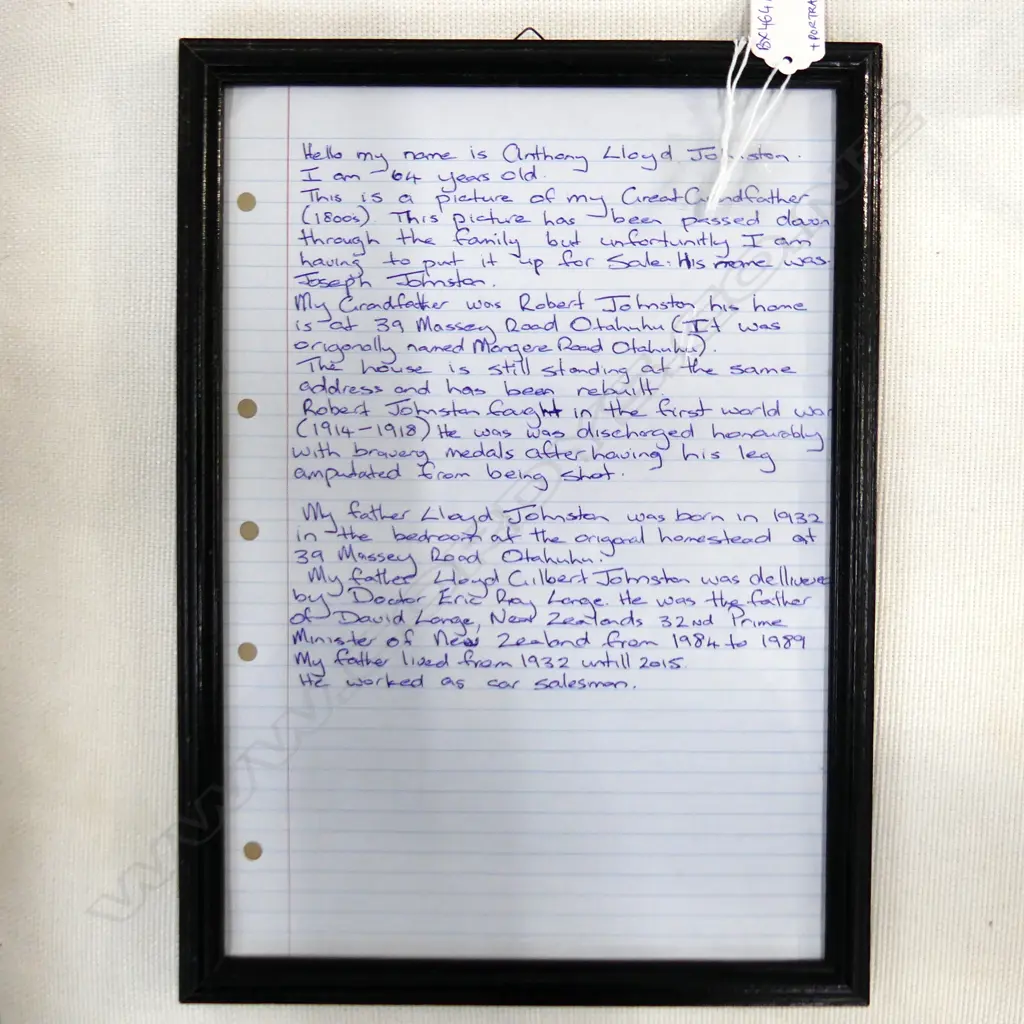 BX464
+ PORTRA
Hello my name is Anthony Lloyd Johnston.
I am 64 years old.
This is a picture of my Great Grandfather
(1800s). This picture has been passed down
through the family but unfortunitly I am
having to put it up for Sale. His name was
Joseph Johnston.
My Grandfather was Robert Johnston his home
is at 39 Massey Road Otahuhu (It was
origonally named Mangere Road Otahuhu).
The house is still standing at the same
address and has been rebuilt.
Robert Johnston faught in the first world war
(1914-1918) He was was discharged honourably
with bravery medals after having his leg
amputated from being shot.
My father Lloyd Johnston was born in 1932
in the bedroom at the origonal homestead at
39 Massey Road Otahuhu.
My father Lloyd Gilbert Johnston was dellivered
by Doctor Eric Roy Lange. He was the father
of David Lange, New Zealands 32nd Prime
Minister of New Zealand from 1984 to 1989
My father lived from 1932 untill 2015.
He worked as car salesman.